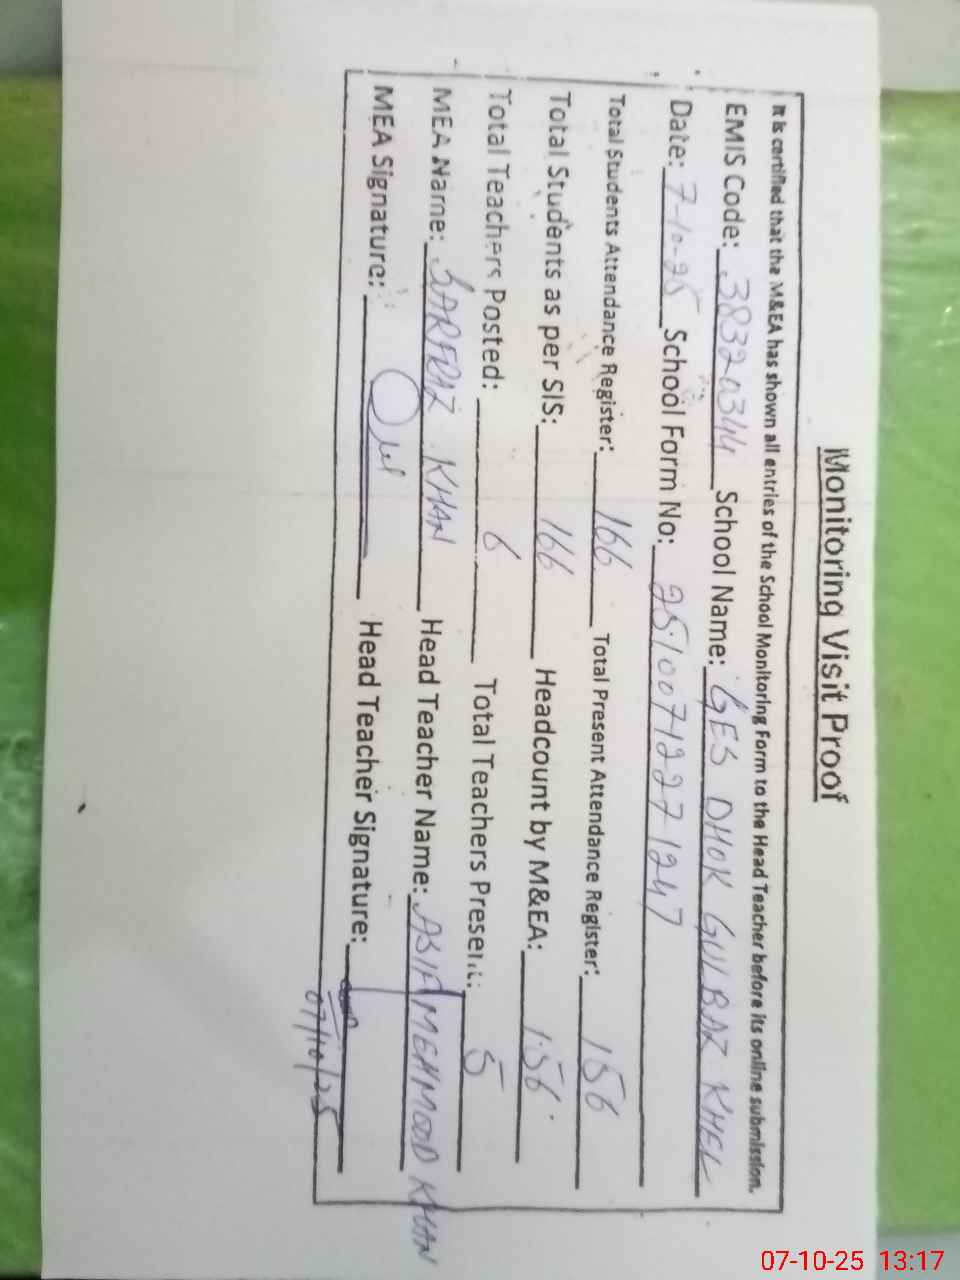 Monitoring Visit Proof
It is certified that the M&EA has shown all entries of the School Monitoring Form to the Head Teacher before its online submission.
EMIS Code: 38320344 School Name: GES DHOK GULBAZ KHEL
Date: 7-10-25 School Form No: 25100712271247
Total Students Attendance Register: 166 Total Present Attendance Register: 156
Total Students as per SIS: 166 Headcount by M&EA: 156
Total Teachers Posted: 6 Total Teachers Present: 5
MEA Name: SARFRAZ KHAN Head Teacher Name: ASIF MEHMOOD KHAN
MEA Signature: Head Teacher Signature:
07/10/25
07-10-25 13:17